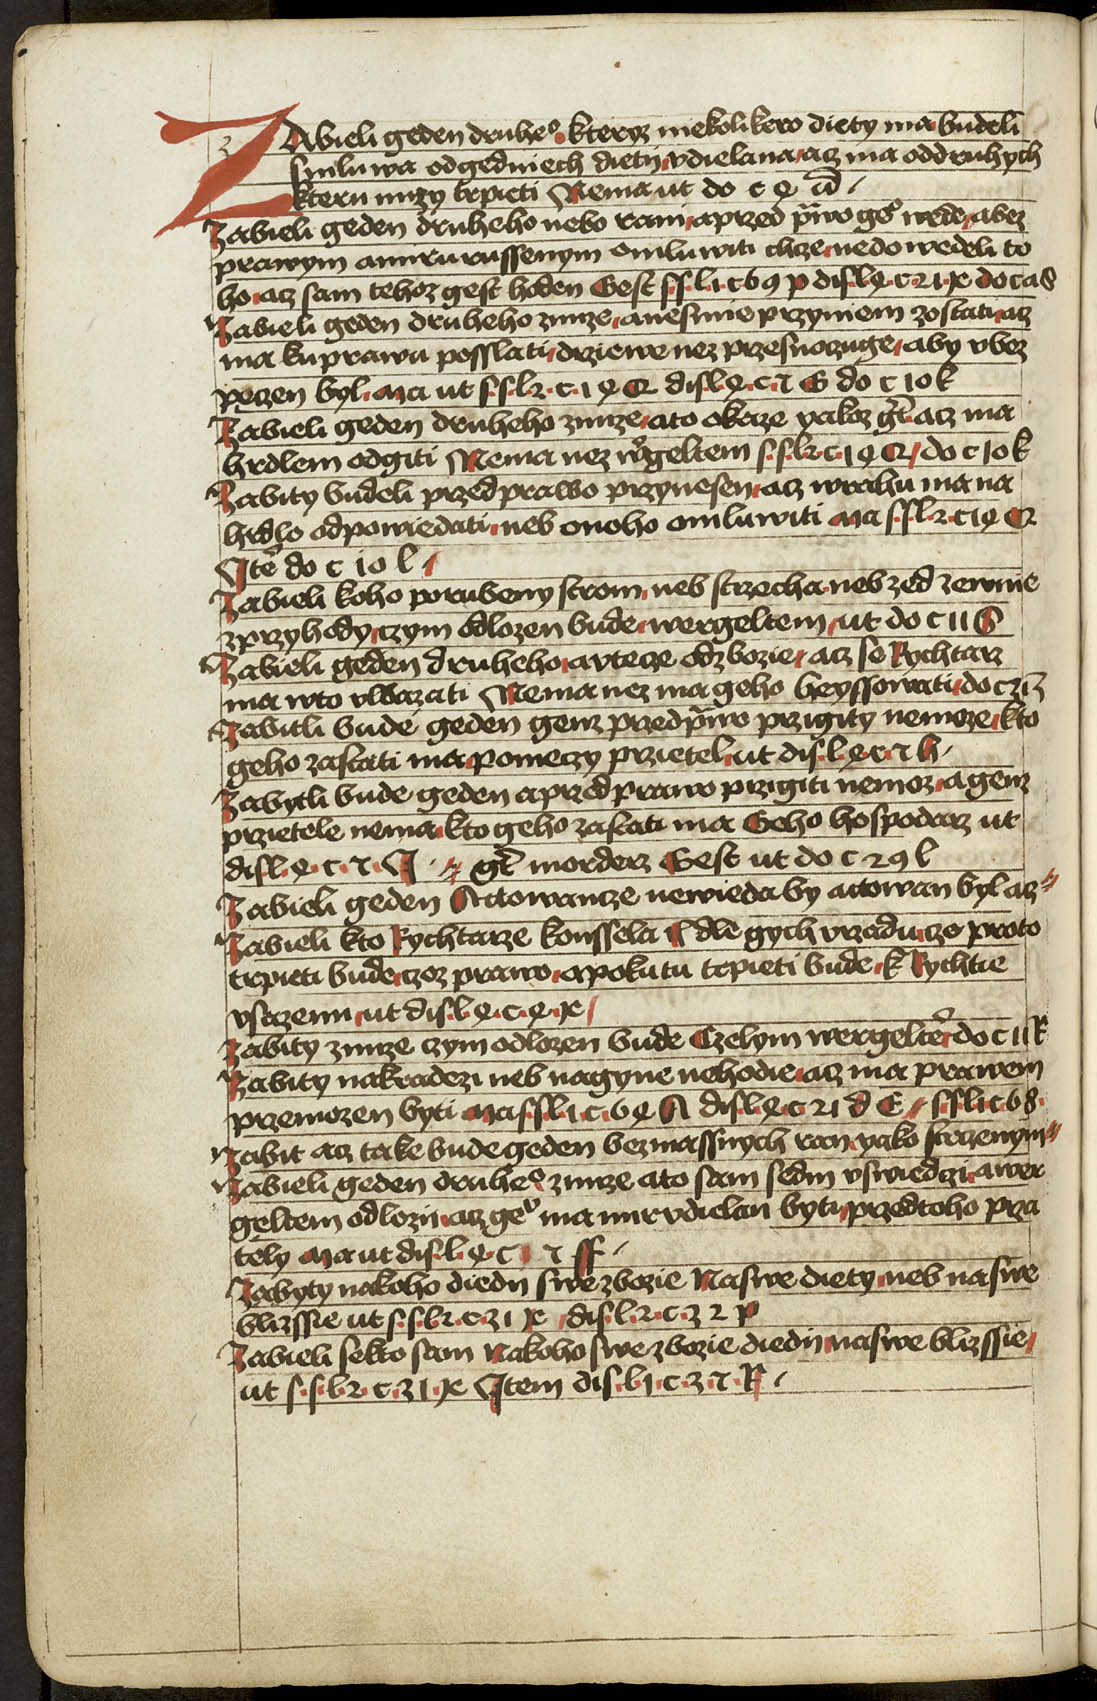 ZAbieli geden druheº kteryz niekolikero diety ma budeli
smluwa odgedniech dietij vdielana acz ma oddruhych
kteru nuzy trpieti Nema ut do c 4 a
Zabieli geden druheho nebo rani aprzed prawo geº wede abez
prawym anirurussenym omluwiti chze nedowedeli to
ho acz sam tehoz gest hoden Gest s.s.l.1 c 69 p dis.l.4.c.21.x do ca8
Zabieli geden druheho zinize anesmie przymem zostati acz
ma kuprawu posslati drziewe nez przesnoczuge aby vbez
peczen byl ma ut s.s.l.2.c.14 Q dis.l.4.c.7 G do c 10 k
Zabieli geden druheho zinize ato okaze yakoz gt acz ma
hrdlem odgiti Nema nez wºgeltem s.s.l.2.c.14 Q do c 10 k
Zabity budeli przed prawo przynesen acz wrahu ma na
hrdlo odpowiedati neb onoho omluwiti ma s.s.l.2.c14 Q
Ite do c 10 l
Zabieli koho porubeny strom neb strzecha neb zed zewnie
zprzyhody czym odlozen bude wergeltem ut do c 11 S
Zabieli geden druheho avtecze odzbozie acz se Rychtarz
ma wto vwazati Nema nez ma geho heyssowati do c
Zabitli bude geden genz przed prawo przigity nemoze kto
geho zastati ma pomeczy przietel ut dis.l.4.c.7 h
Zabytli bude geden aprzed prawo przigiti nemoz agenz
przietele nema kto geho zastati ma Geho hospodarz ut
dis.l.4.c.7.I gt morderz Gest ut do c 29 l
Zabieli geden Attowancze newieda by attowan byl acz
Zabieli kto Rychtarze konssela dle gych vrzadu cze proto
trpieti bude czoz prawo apokutu trpieti bude k Rychtie
vstczenu ut dis.l.4.c.4.x
Zabity zinize czym odlozen bude Czelym wergelte do c 11 R
Zabity nakradezi neb nagyne nehodie acz ma prawem
przemozen byti ma s.s.l.1 c.64 A dis.l.4.c 21 d E s.s.l.1 c 68
Zabit acz take bude geden bezmassnych ran yako strzenym
Zabieli geden druheº zinize ato sam sedm vswiedczi awer
geltem odlozij acz geº ma mir vdielan byti przedtoho prza
tely ma ut dis.l.4.c 7 ff
Zabyty nakoho diedij swe zbozie Naswe diety neb naswe
blizssie ut s.s.l.2.c.31 x dis.l.2.c.32 p
Zabieli sekto sam Nakoho swe zbozie diedij naswe blizssie
ut s.s.l.2.c.31.x Item dis.l.1.c.37.R